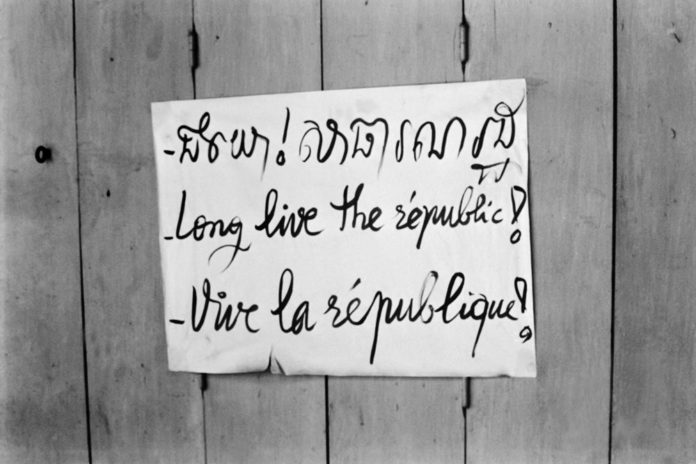 -ជ័យោ! សាធារណរដ្ឋ
-Long live the républic!
-Vive la république!